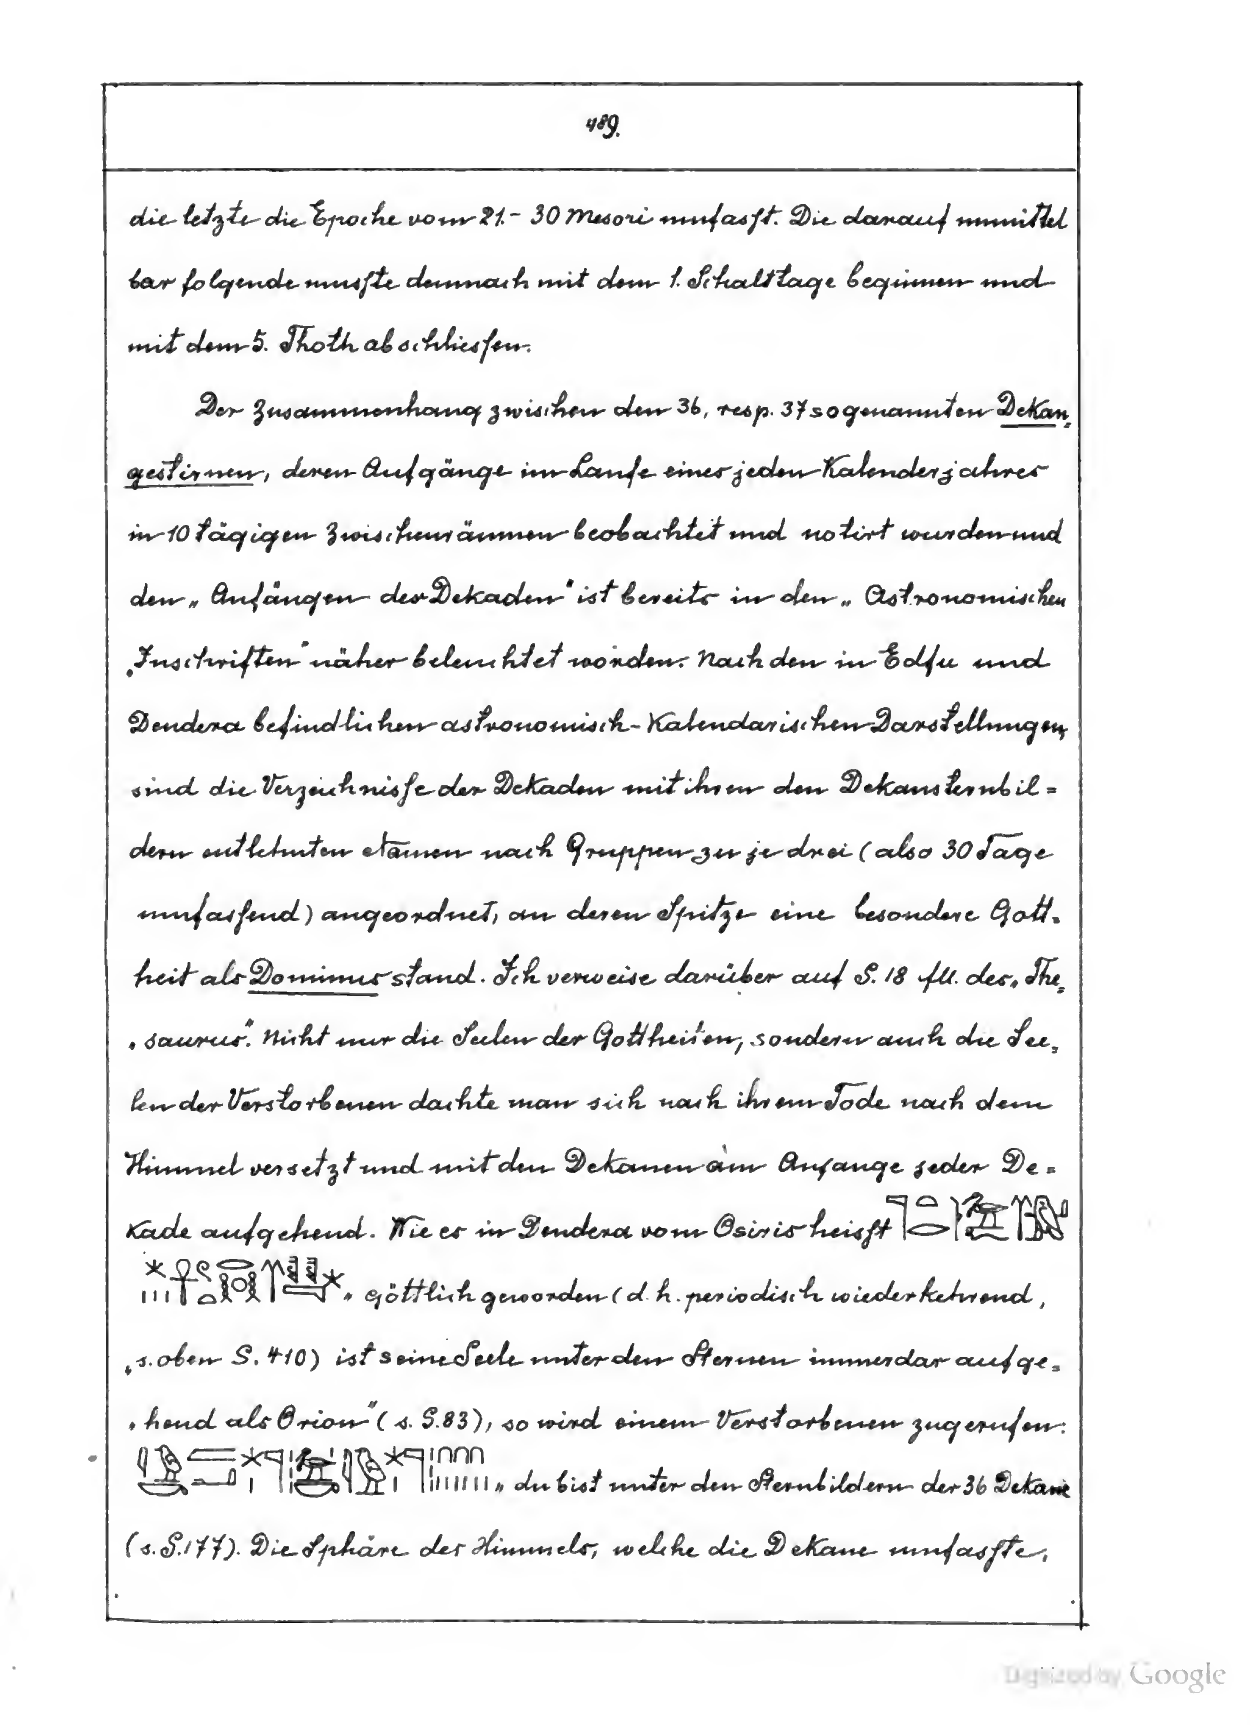 489.
die letzte die Epoche vom 21.- 30 Mesori umfasst. Die darauf unmittel
bar folgende musste demnach mit dem 1. Schalttage beginnen und
mit dem 5. Thoth abschliessen.
Der Zusammenhang zwischen den 36, resp. 37 sogenannten Dekan„
gestirnen, deren Aufgänge im Laufe eines jeden Kalenderjahres
in 10 tägigen Zwischenräumen beobachtet und notirt wurden und
den „Anfängen der Dekaden" ist bereits in den „Astronomischen
„Inschriften" näher beleuchtet worden. Nach den in Edfu und
Dendera befindlichen astronomisch-Kalendarischen Darstellungen,
sind die Verzeichnisse der Dekaden mit ihren den Dekansternbil=
dern entlehnten Namen nach Gruppen zu je drei (also 30 Tage
umfassend) angeordnet, an deren Spitze eine besondere Gott=
heit als Dominus stand. Ich verweise darüber auf S. 18 fll. des „The„
„saurus". Nicht nur die Seelen der Gottheiten, sondern auch die See„
len der Verstorbenen dachte man sich nach ihrem Tode nach dem
Himmel versetzt und mit den Dekanen am Anfange jeder De=
kade aufgehend. Wie es in Dendera vom Osiris heisst
„göttlich geworden (d. h. periodisch wiederkehrend,
„s. oben S. 410) ist seine Seele unter den Sternen immerdar aufge=
„hend als Orion" (s. S. 83), so wird einem Verstorbenen zugerufen:
„du bist unter den Sternbildern der 36 Dekane
(s. S. 177). Die Sphäre des Himmels, welche die Dekane umfasste,
Digitized by Google